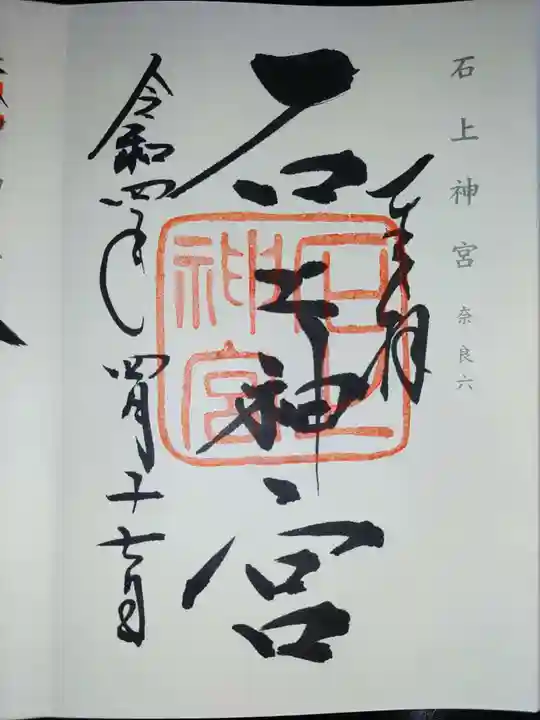 石上神宮 奈良六
奉拝
石上神宮
石上神宮
令和四年四月二十七日